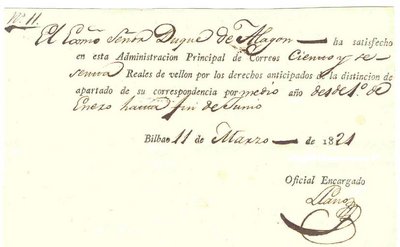 Nº. 11.
El Exmo Señor Duque de Magon ha satisfecho
en esta Administracion Principal de Correos Ciento y se-
senta Reales de vellon por los derechos anticipados de la distincion de
apartado de su correspondencia por medio año desde 1º. de
Enero hasta fin de Junio
Bilbao 11 de Marzo de 1821
Oficial Encargado
Llano